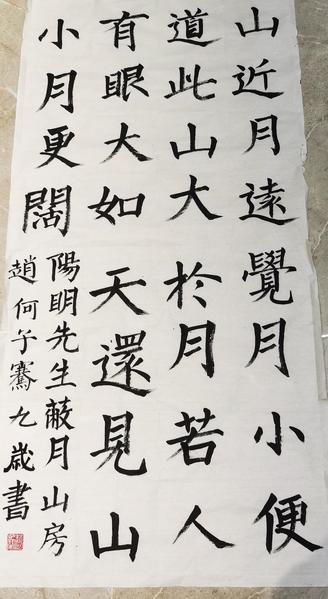 山近月遠覺月小便
道此山大於月若人
有眼大如天還見山
小月更闊
陽明先生蔽月山房
趙何子騫九歲書